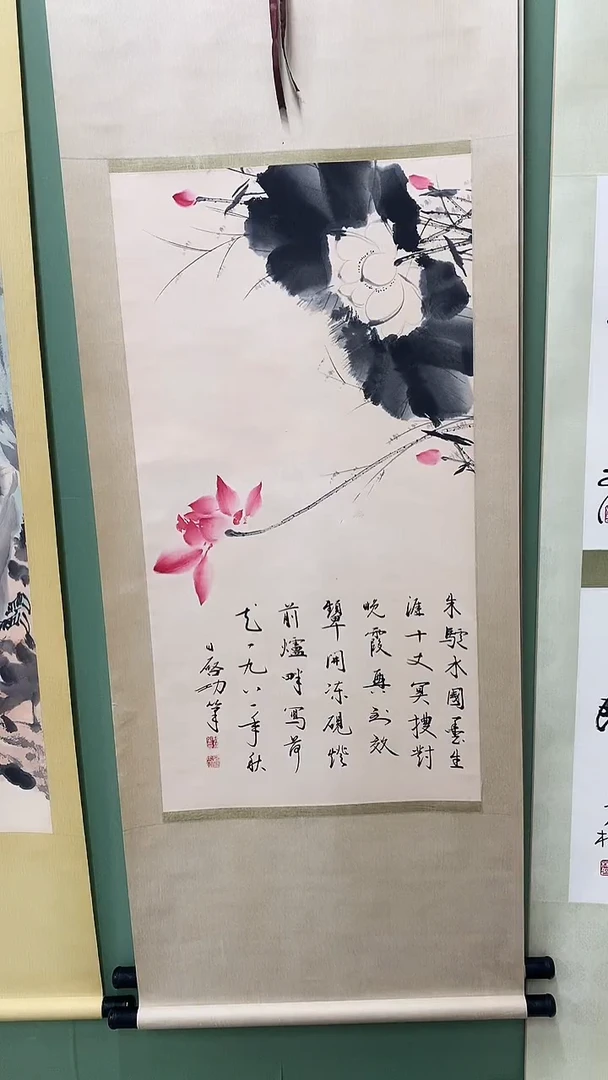 朱駝水國墨生
涯十丈冥搜對
晚霞興到效
顰開凍硯燈
前爐畔寫荷
花一九八一年秋
日啓功筆